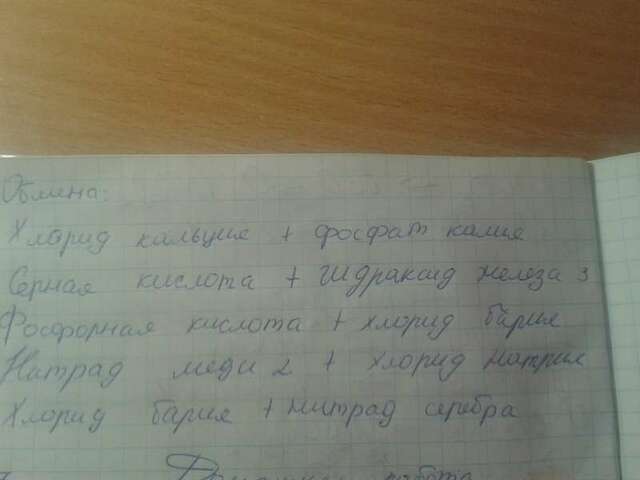 Обмена:
Хлорид кальция + фосфат калия
Серная кислота + гидраксид железа 3
Фосфорная кислота + хлорид бария
Натрад меди 2 + хлорид натрия
Хлорид бария + нитрад серебра
Домашняя работа